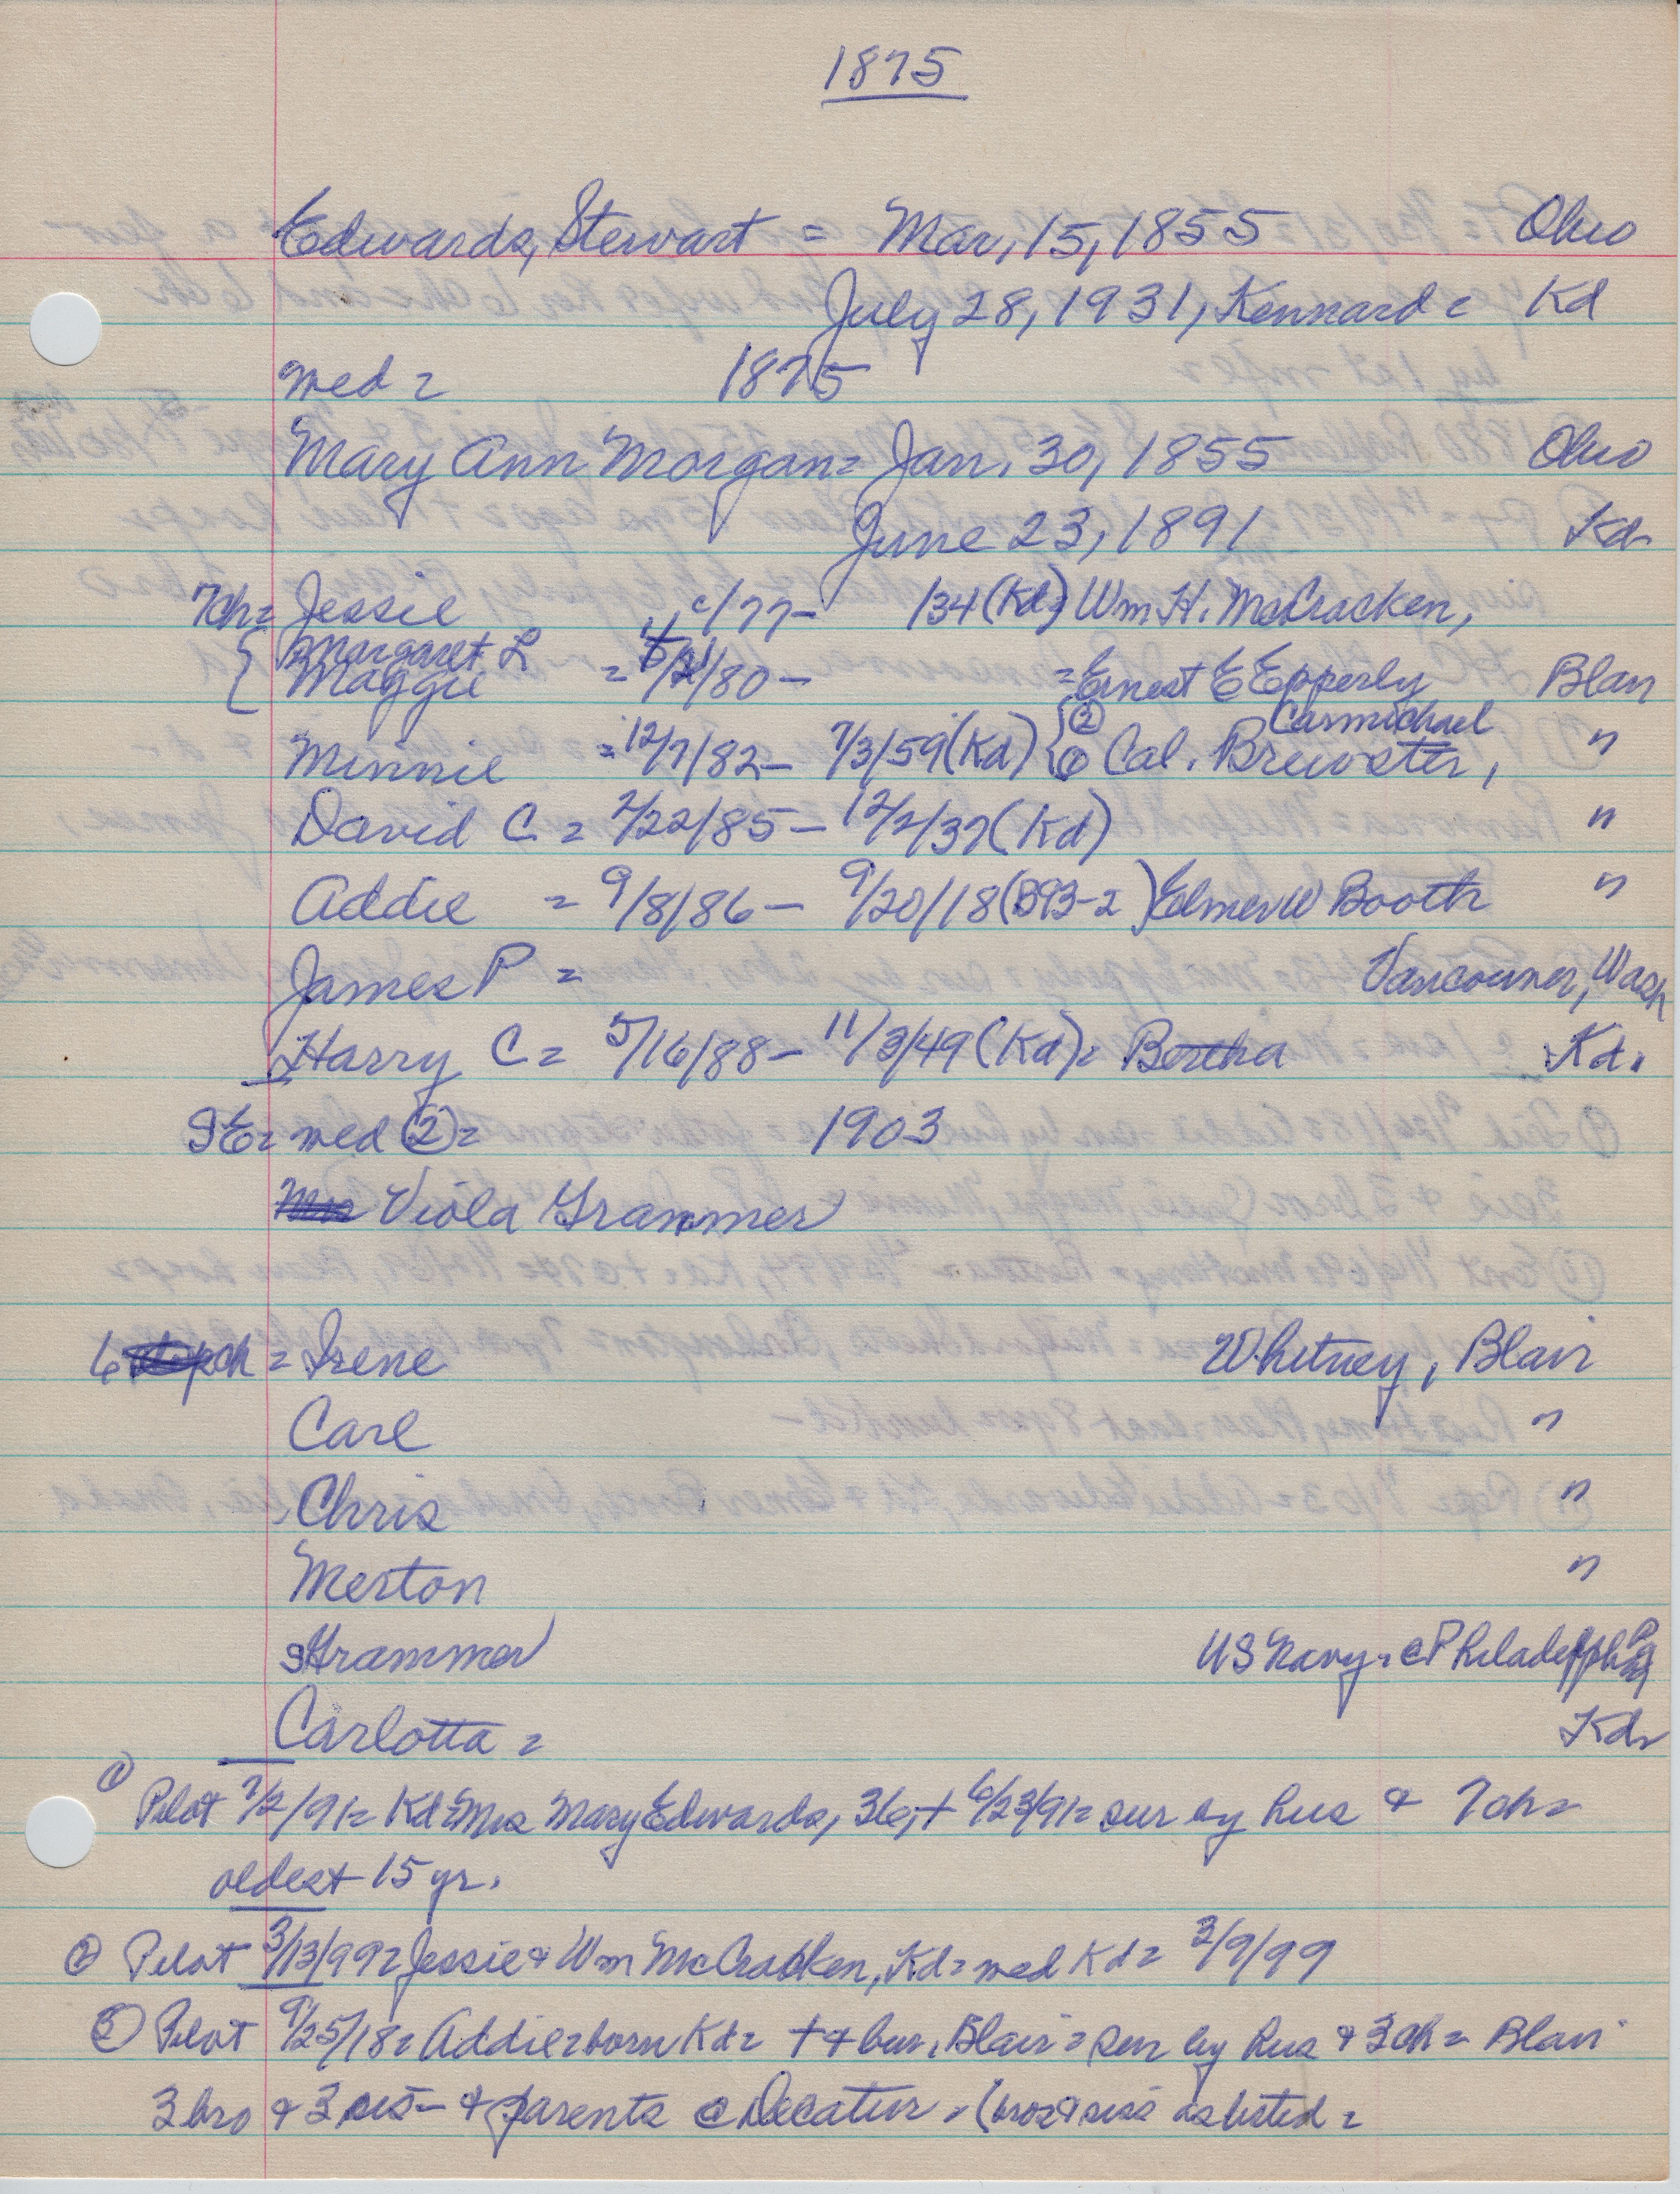 1875
Edwards, Stewart = Mar, 15, 1855 Ohio
July 28, 1931, Kennard = Kd
med = 1875
Mary Ann Morgan = Jan, 30, 1855 Ohio
June 23, 1891 Kd
7ch = Jessie c/77- /34 (Kd) Wm H. McCracken,
Margaret L
Maggie = /80 - = Ernest E Epperly Blair
② Carmichael
Minnie = 12/7/82 - 7/3/59 (Kd) ① Cal. Brewster, "
David C = 2/22/85 - 12/2/37 (Kd) "
Addie = 9/8/86 - 9/20/18 (B93-2) Elmer W Booth "
James P = Vancouver, Wash
Harry C = 5/16/88 - 11/3/49 (Kd) = Bertha Kd.
SE = med ② = 1903
Mrs Viola Grammer
6 stepch = Irene Whitney, Blair
Carl "
Chris "
Merton "
Grammer US Navy = @ Philadelphia Pa
Carlotta = Kd
① Pilot 7/2/91 = Kd = Mrs Mary Edwards, 36, + 6/23/91 = sur by hus & 7ch =
oldest 15 yr.
② Pilot 3/13/99 = Jessie & Wm McCracken, Kd = med Kd = 3/9/99
③ Pilot 9/25/18 = Addie = born Kd = + & bur. Blair = sur by hus & 3ch = Blair
3 bro & 3 sis - & parents @ Decatur = (bros & siss as listed =